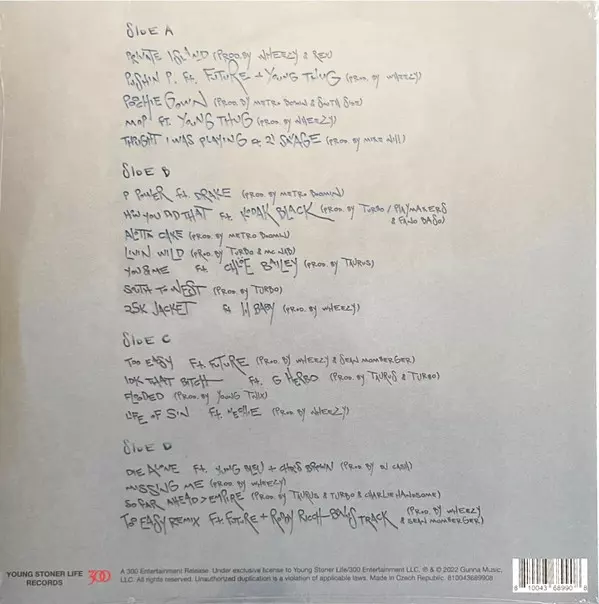 SIDE A
PRIVATE ISLAND (PROD. BY WHEEZY & REX)
PUSHIN P. FT. FUTURE + YOUNG THUG (PROD. BY WHEEZY)
POOCHIE GOWN (PROD. BY METRO BOOMIN & SOUTH SIDE)
MOP FT. YOUNG THUG (PROD. BY WHEEZY)
THOUGHT I WAS PLAYING FT. 21 SAVAGE (PROD. BY MIKE WILL)
SIDE B
P POWER FT. DRAKE (PROD. BY METRO BOOMIN)
HOW YOU DID THAT FT. KODAK BLACK (PROD. BY TURBO / PLAYMAKERS
& FANO BASO)
ALOTTA CAKE (PROD. BY METRO BOOMIN)
LIVIN WILD (PROD. BY TURBO & MC NAB)
YOU & ME FT. CHLÖE BAILEY (PROD. BY TAURUS)
SOUTH TO WEST (PROD. BY TURBO)
25K JACKET FT. LIL BABY (PROD. BY WHEEZY)
SIDE C
TOO EASY FT. FUTURE (PROD. BY WHEEZY & SEAN MOMBERGER)
IDK THAT BITCH FT. G HERBO (PROD. BY TAURUS & TURBO)
FLOODED (PROD. BY YOUNG TWIX)
LIFE OF SIN FT. NECHIE (PROD. BY WHEEZY)
SIDE D
DIE ALONE FT. YUNG BLEU + CHRIS BROWN (PROD. BY CASH)
MISSING ME (PROD. BY WHEEZY)
SO FAR AHEAD > EMPIRE (PROD. BY TAURUS & TURBO & CHARLIE HANDSOME)
TOO EASY REMIX FT. FUTURE + RODDY RICCH - BONUS TRACK (PROD. BY WHEEZY
& SEAN MOMBERGER)
YOUNG STONER LIFE
RECORDS
300
A 300 Entertainment Release. Under exclusive license to Young Stoner Life/300 Entertainment LLC. ℗ & © 2022 Gunna Music,
LLC. All rights reserved. Unauthorized duplication is a violation of applicable laws. Made in Czech Republic. 810043689908
8 10043 68990 8